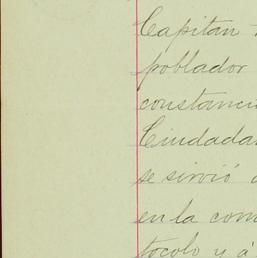 Capitan
poblador
constanci
Ciudadan
se sirvió
en la com
tocolo y á